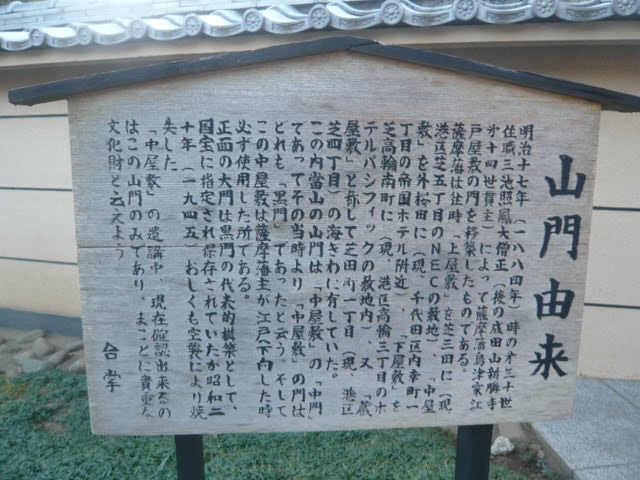 山門由来
明治十七年（一八八四年）時の才三十世
住職三池照鳳大僧正（後の成田山新勝寺
才十四世貫主）によって薩摩藩島津家江
戸屋敷の門を移築したものである。
薩摩藩は往時「上屋敷」を芝三田に（現
港区芝五丁目のNECの敷地）、「中屋
敷」を外桜田に（現、千代田区内幸町一
丁目の帝国ホテル附近）、「下屋敷」を
芝高輪南町に（現、港区高輪三丁目のホ
テルパシフィックの敷地内）、又、「蔵
屋敷」と称して芝田町一丁目（現、港区
芝四丁目）の海ぎわに有していた。
この内當山の山門は、「中屋敷」の「中門」
であってその当時より「中屋敷」の門は
どれも「黒門」であったと云う。そして
この中屋敷は薩摩藩主が江戸に下向した時
必ず使用した所である。
正面の大門は黒門の代表的構築として、
国宝に指定され保存されていたが昭和二
十年（一九四五）おしくも空襲により焼
失した
「中屋敷」の遺講中、現在確認出来るの
はこの山門のみであり、まことに貴重な
文化財と云えよう
合掌